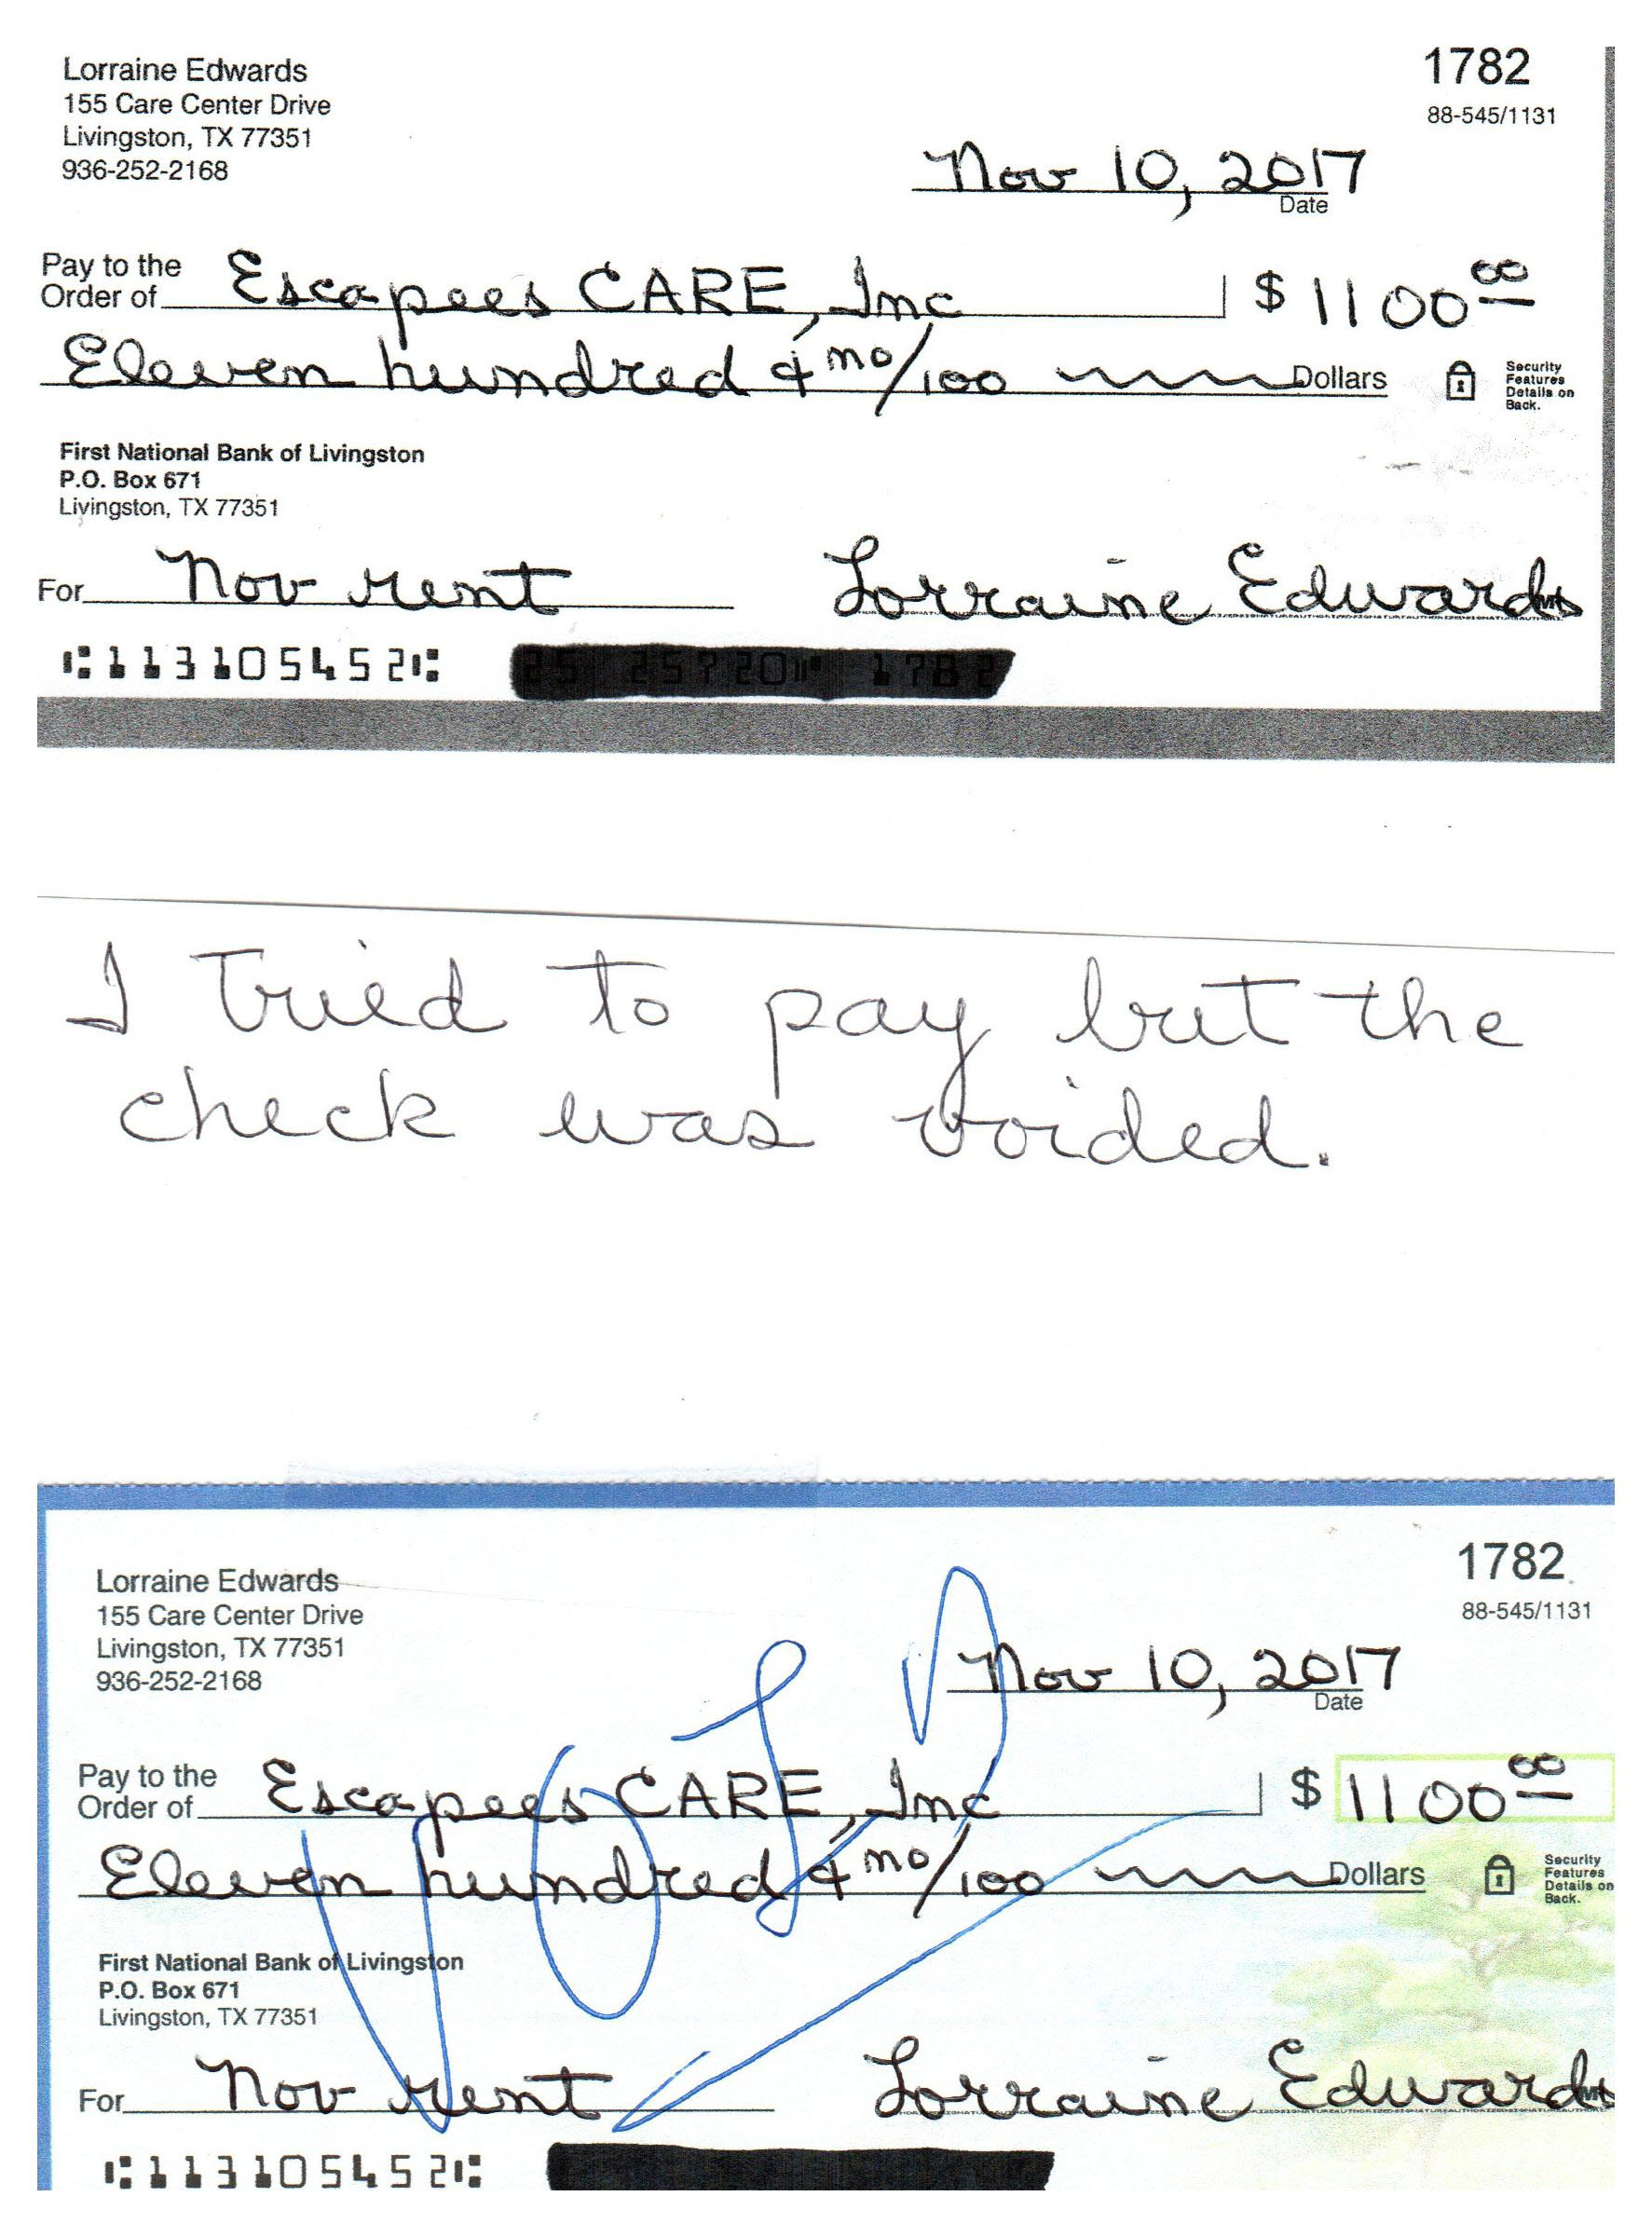 Lorraine Edwards
1782
155 Care Center Drive
88-545/1131
Livingston, TX 77351
936-252-2168
Nov 10, 2017
Date
Pay to the
Order of Escapees CARE, Inc $ 1100 00
Eleven hundred & no/100 Dollars
Security
Features
Details on
Back.
First National Bank of Livingston
P.O. Box 671
Livingston, TX 77351
For Nov rent Lorraine Edwards
MP
⑆113105452⑆
I tried to pay but the
check was voided.
Lorraine Edwards
1782
155 Care Center Drive
88-545/1131
Livingston, TX 77351
936-252-2168
Nov 10, 2017
Date
VOID
Pay to the
Order of Escapees CARE, Inc $ 1100 00
Eleven hundred & no/100 Dollars
Security
Features
Details on
Back.
First National Bank of Livingston
P.O. Box 671
Livingston, TX 77351
For Nov rent Lorraine Edwards
MP
⑆113105452⑆